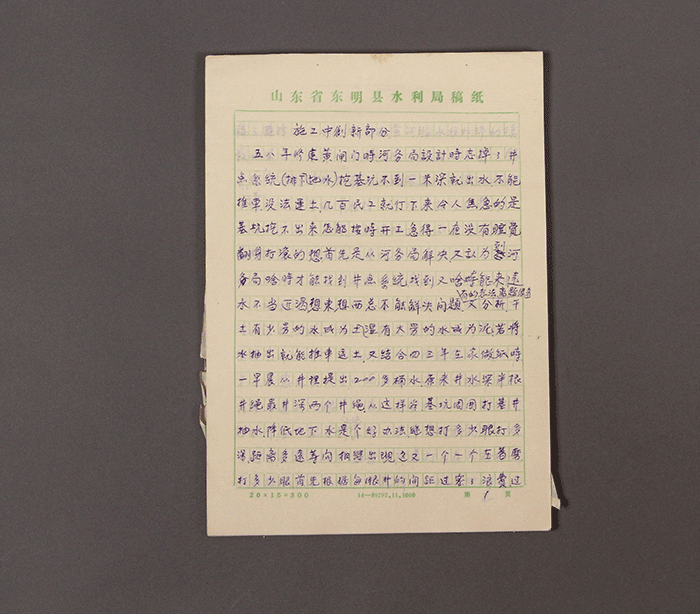 山东省东明县水利局稿纸
施工中创新部分
五八年修东黄闸门时河务局設計時忘掉了井
点系统(排下地水)挖基坑不到一米深就出水不能
推車没法運土,几百民工就仃下来令人焦急的是
基坑挖不出来怎能按時开工急得一夜没有睡覺
翻身打滚的想首先是从河务局解决又認为到河
务局啥時才能找到井点系统找到又啥時能来远
水不当近渴想来想西总不能解决问題又分析干
土有少劳的水成为土湿有大劳的水成为泥若將
水抽出就能推車运土,又结合四三年在家做飯時
一早晨从井裡提出200多桶水,原来井水深半根
井绳最井深两个井绳,从这样沿基坑周围打基井
抽水,降低地下水是个好办法继想打多少眼打多
深,距离多远等问相继出现这又一个一个在着磨
打多少眼首先根据每眼井的间距过密了浪費过
20×15=300
第 1 页